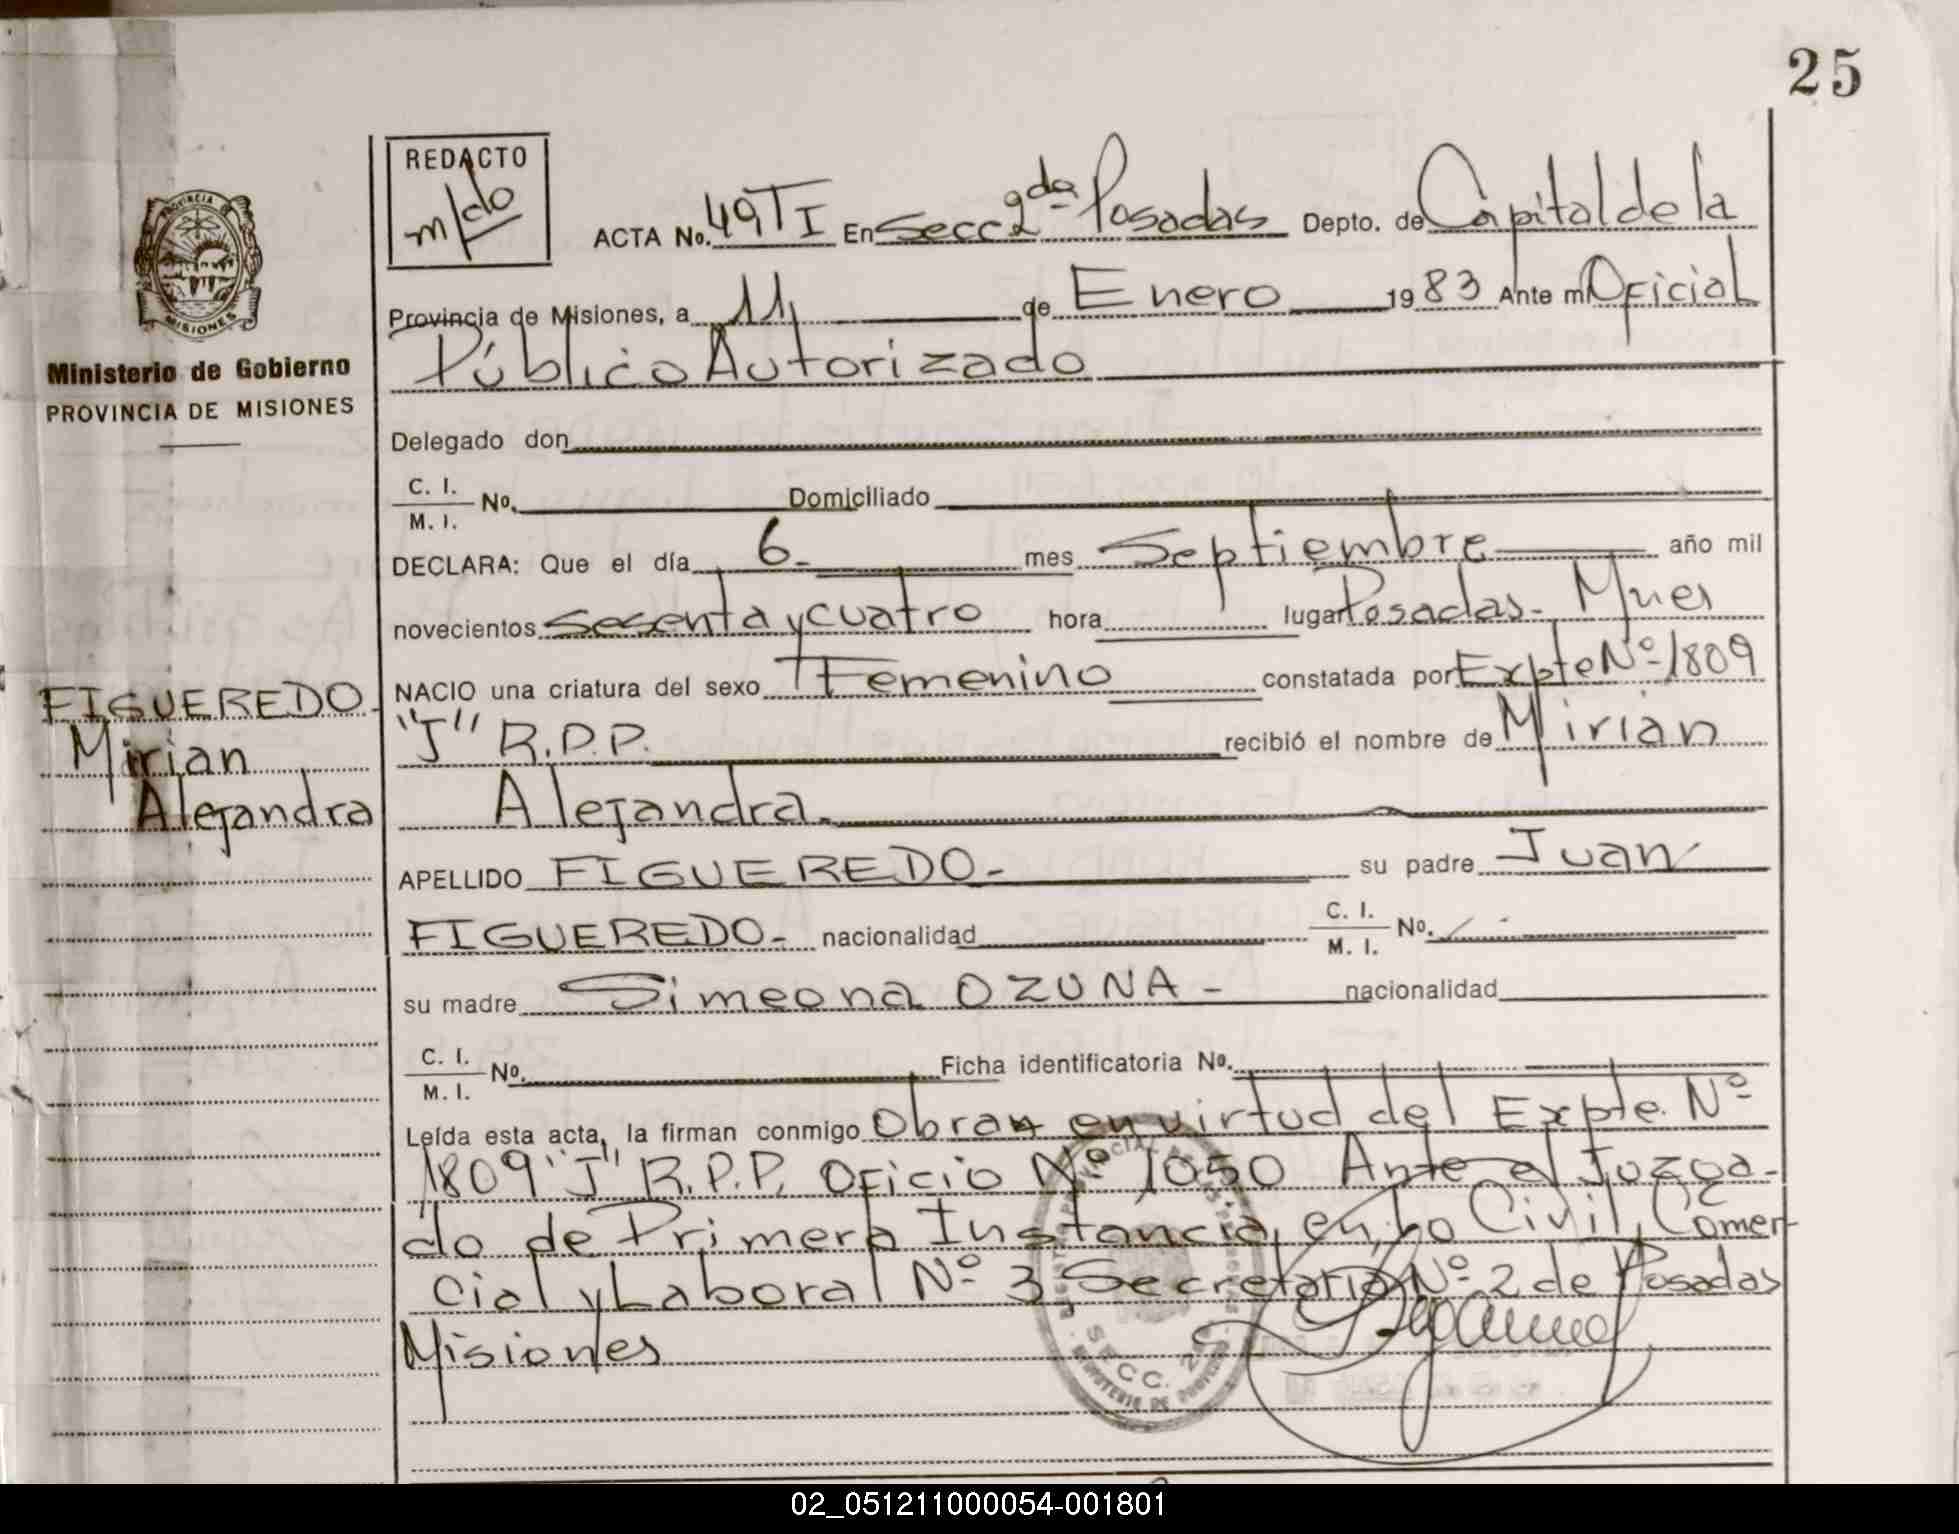 25
REDACTO
m/do
PROVINCIA
MISIONES
ACTA No. 49 TI En Secc 2da Posadas Depto. de Capital de la
Provincia de Misiones, a 11 de Enero 1983 Ante mi Oficial
Ministerio de Gobierno
PROVINCIA DE MISIONES
Público Autorizado
Delegado don
C. I.
M. I. No. Domiciliado
DECLARA: Que el día 6 mes Septiembre año mil
novecientos sesenta y cuatro hora lugar Posadas - Mnes
FIGUEREDO
Mirian
Alejandra
NACIO una criatura del sexo Femenino constatada por Expte Nº 1809
"J" R.P.P. recibió el nombre de Mirian
Alejandra.
APELLIDO FIGUEREDO- su padre Juan
FIGUEREDO- nacionalidad C. I.
M. I. No.
su madre Simeona OZUNA - nacionalidad
C. I.
M. I. No. Ficha identificatoria No.
Leída esta acta, la firman conmigo Obran en virtud del Expte. Nº
1809 "J" R.P.P. Oficio Nº 1050 Ante el Juzga-
do de Primera Instancia en lo Civil, Comer-
cial y Laboral Nº 3, Secretaria Nº 2 de Posadas
Misiones
SECC. 2da
02_051211000054-001801